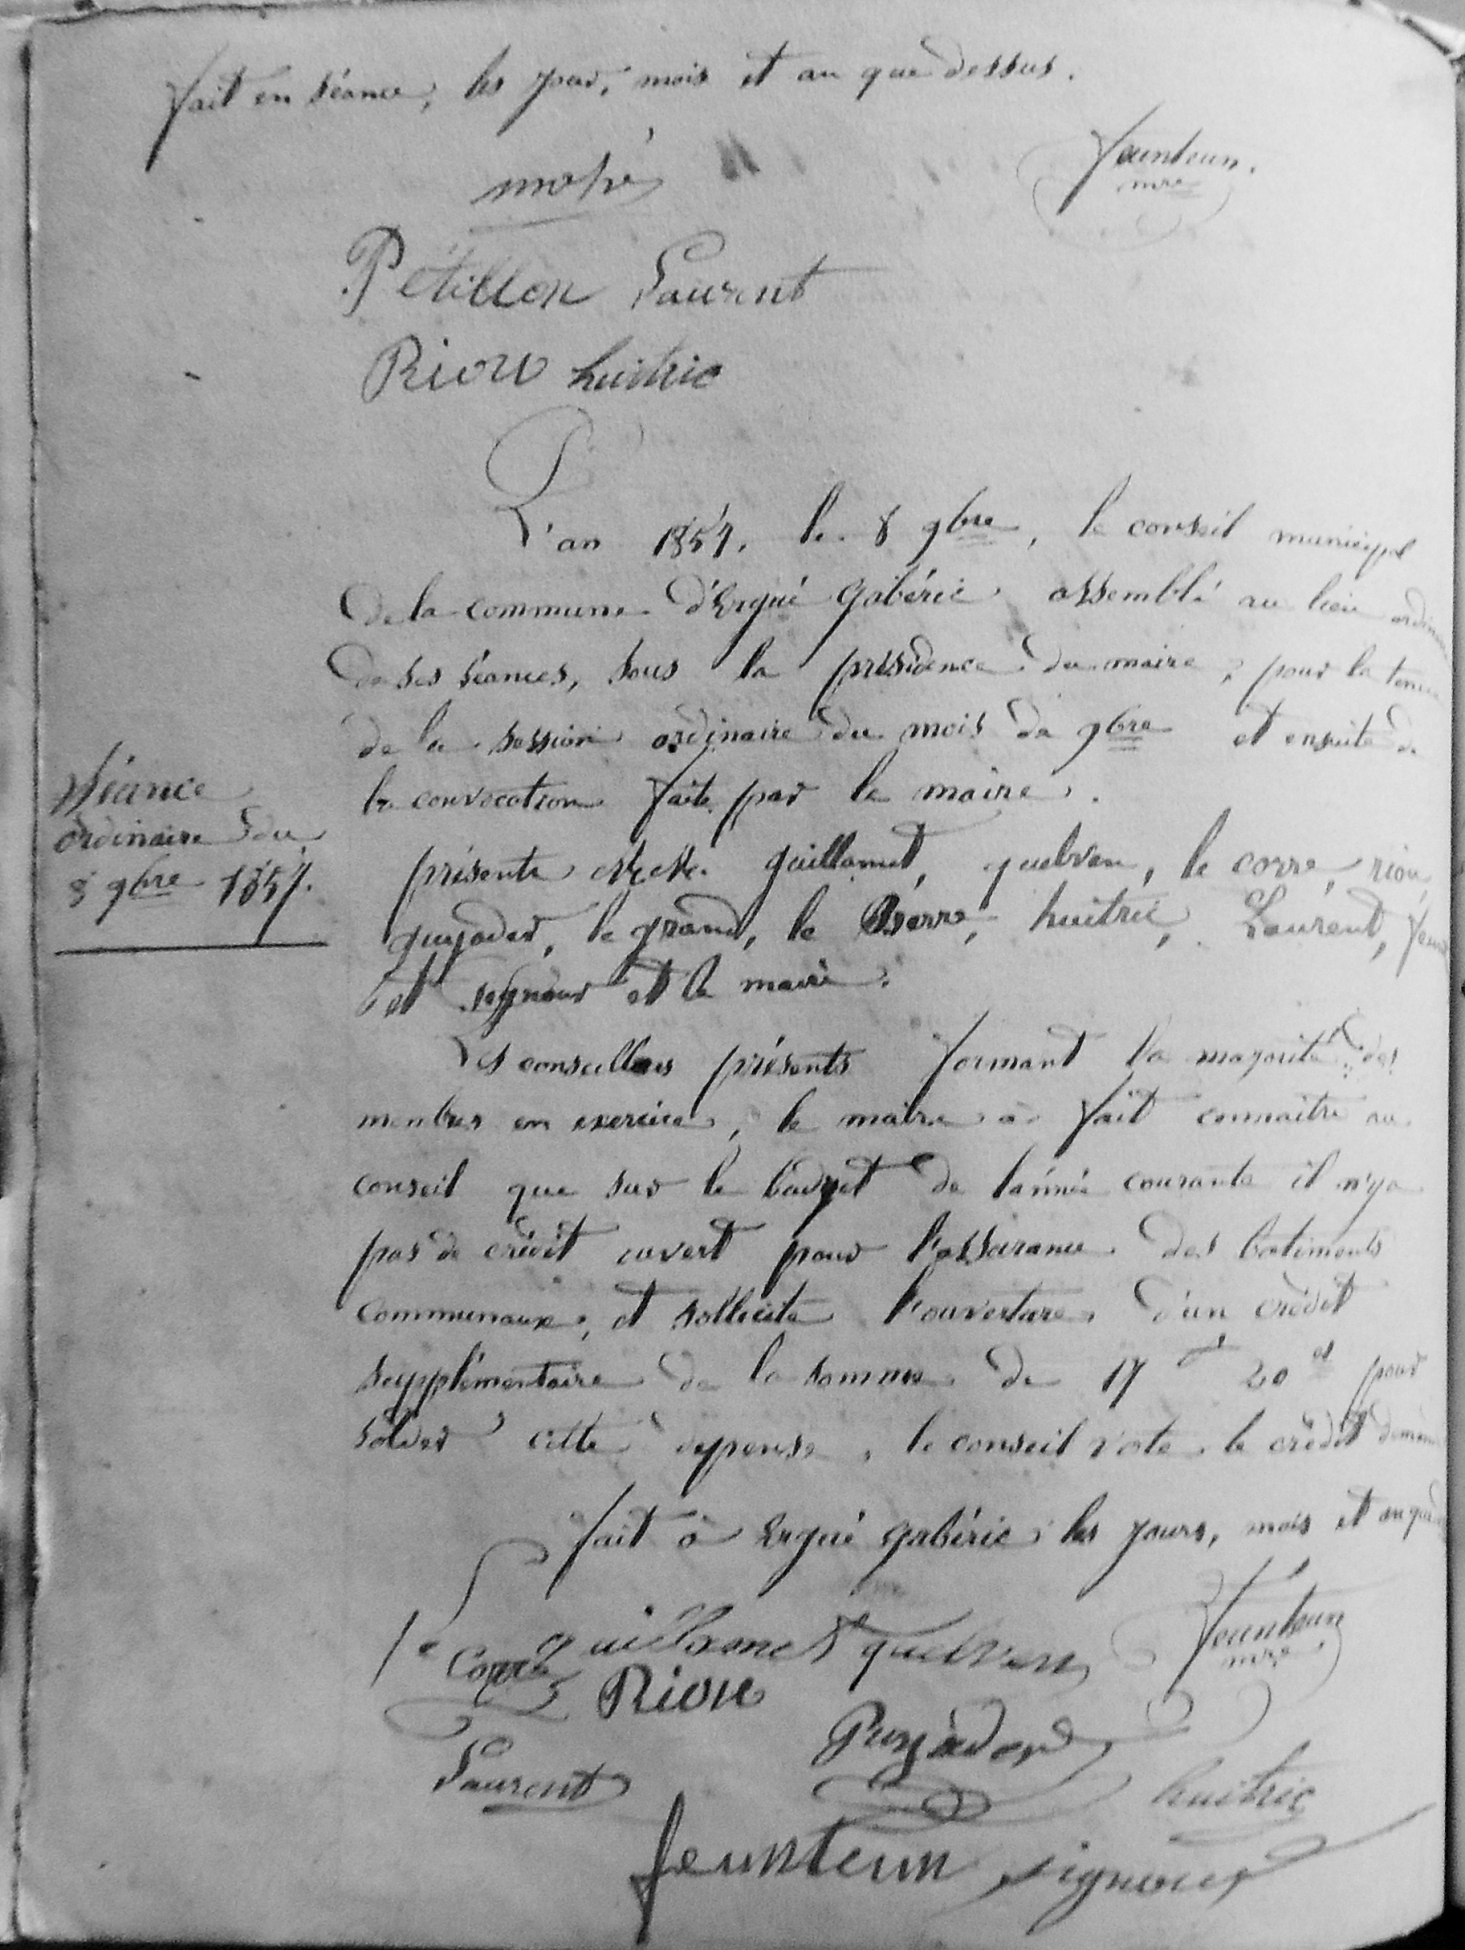 fait en séance, les jour, mois et an que dessus.
feunteun
mre
mahé
Pétillon Laurent
Riou huitric
L'an 1857. le 8 9bre, le conseil municipal
de la commune d'Ergué gabéric assemblé au lieu ordinaire
de ses séances, sous la présidence du maire, pour la tenue
de la session ordinaire du mois de 9bre et ensuite de
la convocation faite par le maire.
Séance
ordinaire du
8 9bre 1857.
présents guillamet, quelven, le corre, riou,
guyader, le grand, le Berre, huitric, Laurent,
et seigneur et le maire.
Les conseillers présents formant la majorité des
membres en exercice, le maire a fait connaitre au
conseil que sur le budget de l'année courante il n'ya
pas de crédit ouvert pour l'assurance des batiments
communaux, et sollicite l'ouverture d'un crédit
supplémentaire de la somme de 17 f 20 es pour
solder cette depense, le conseil vote le crédit
fait à Ergué gabéric les jours, mois et an que
guillamet quelven feunteun
mre
le Corre Riou
Guyader
Laurent huitric
feunteun signour